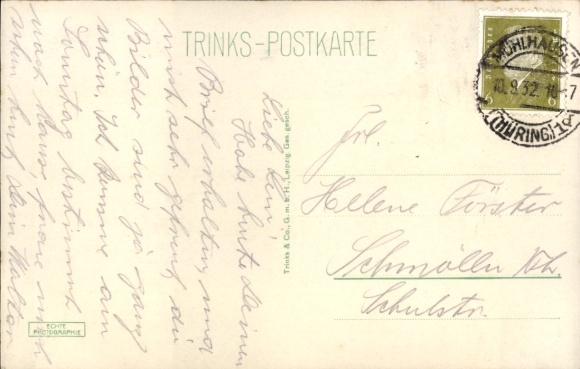 TRINKS-POSTKARTE
Liebe Leni!
Habe heute Deinen
Brief erhalten und
mich sehr gefreut, die
Bilder sind ja ganz
schön. Ich komme am
Sonntag bestimmt
nach Hause freue mich
schon Dein Walter
Trinks & Co., G. m. b. H., Leipzig. Ges. gesch.
ECHTE
PHOTOGRAPHIE
MÜHLHAUSEN
10.9.32
(THÜRING)
6
6
Frl.
Helene Förster
Schmölln Th.
Schulstr.